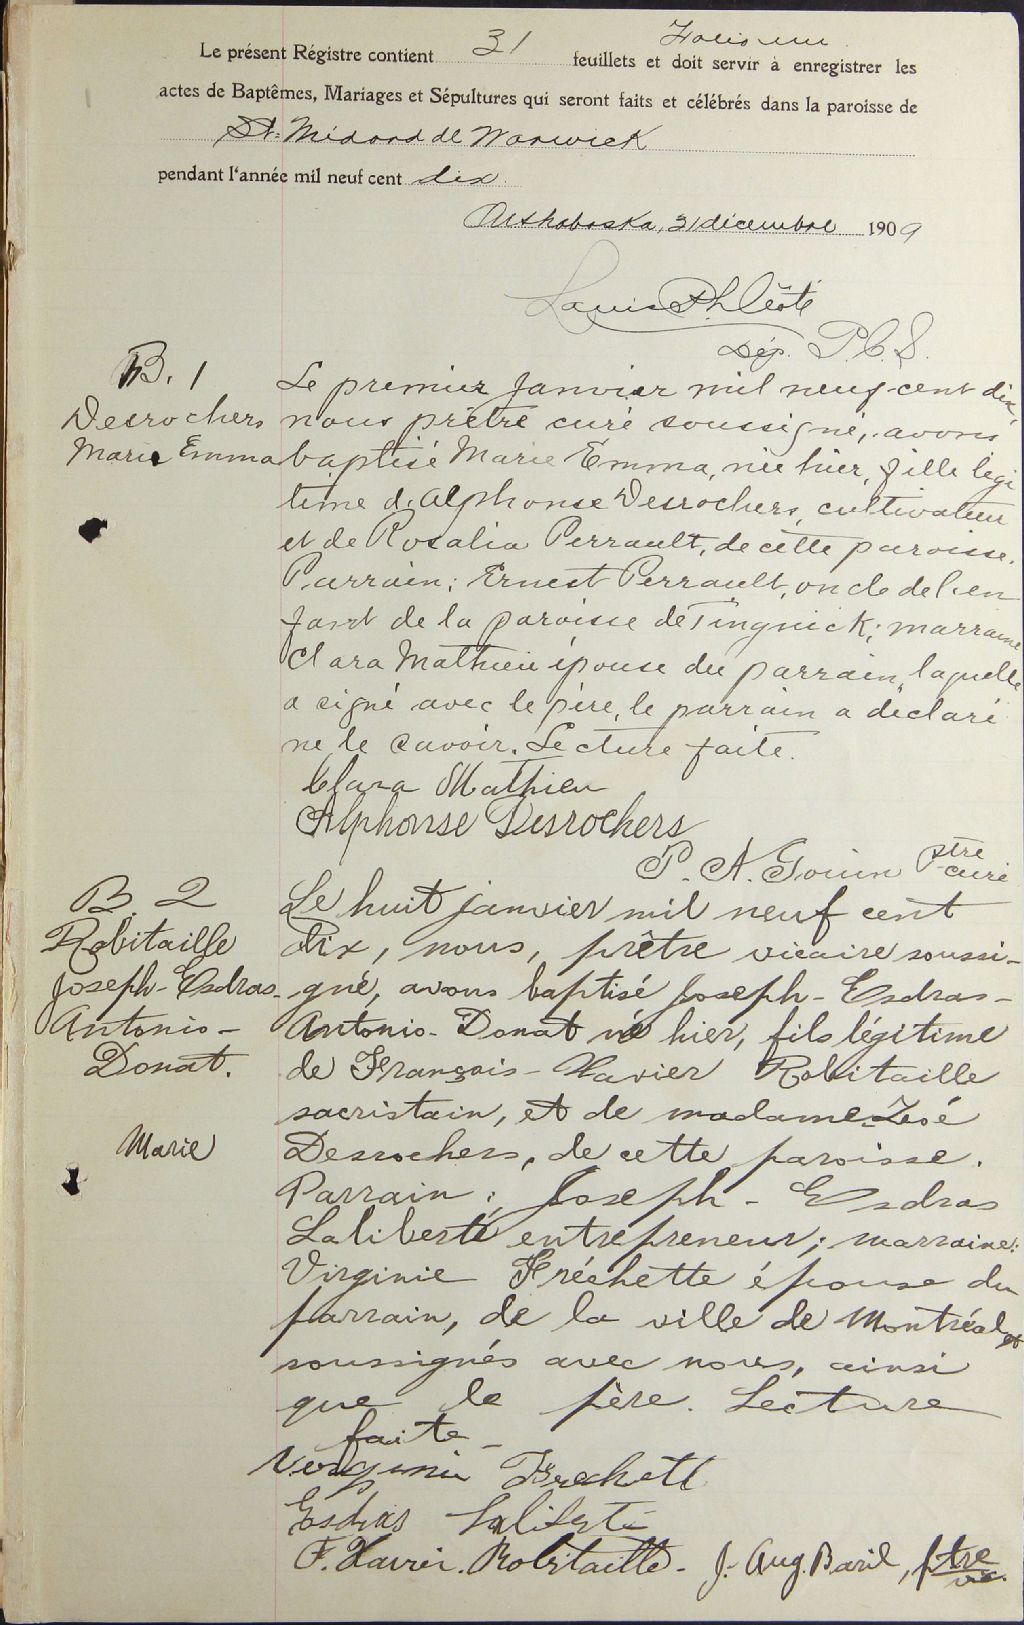 Folio un
Le présent Régistre contient 31 feuillets et doit servir à enregistrer les
actes de Baptêmes, Mariages et Sépultures qui seront faits et célébrés dans la paroisse de
St. Médard de Warwick
pendant l'année mil neuf cent dix
Arthabaska, 31 décembre 1909
Louis Ph. Côté
Dép. P.C.S.
B. 1
Desrochers
Marie Emma
Le premier Janvier mil neuf-cent dix,
nous prêtre curé soussigné, avons
baptisé Marie Emma, née hier, fille légi
time d'Alphonse Desrochers, cultivateur
et de Rosalia Perrault, de cette paroisse.
Parrain: Ernest Perrault, oncle de l'en
fant de la paroisse de Tingwick; marraine
Clara Mathieu épouse du parrain, laquelle
a signé avec le père, le parrain a déclaré
ne le savoir. Lecture faite.
Clara Mathieu
Alphonse Desrochers
P. N. Gouin ptre curé
B 2
Robitaille
Joseph-Esdras-
Antonio-
Donat.
Marie
Le huit janvier mil neuf cent
dix, nous, prêtre vicaire soussi-
gné, avons baptisé Joseph-Esdras-
Antonio-Donat né hier, fils légitime
de François-Xavier Robitaille
sacristain, et de madame
Desrochers, de cette paroisse.
Parrain: Joseph-Esdras
Laliberté entrepreneur; marraine:
Virginie Fréchette épouse du
parrain, de la ville de Montréal
soussignés avec nous, ainsi
que le père. Lecture
faite-
Virginie Frechett
Esdras Laliberté
F. Xavier. Robitaille- J.-Aug. Baril, ptre vic.